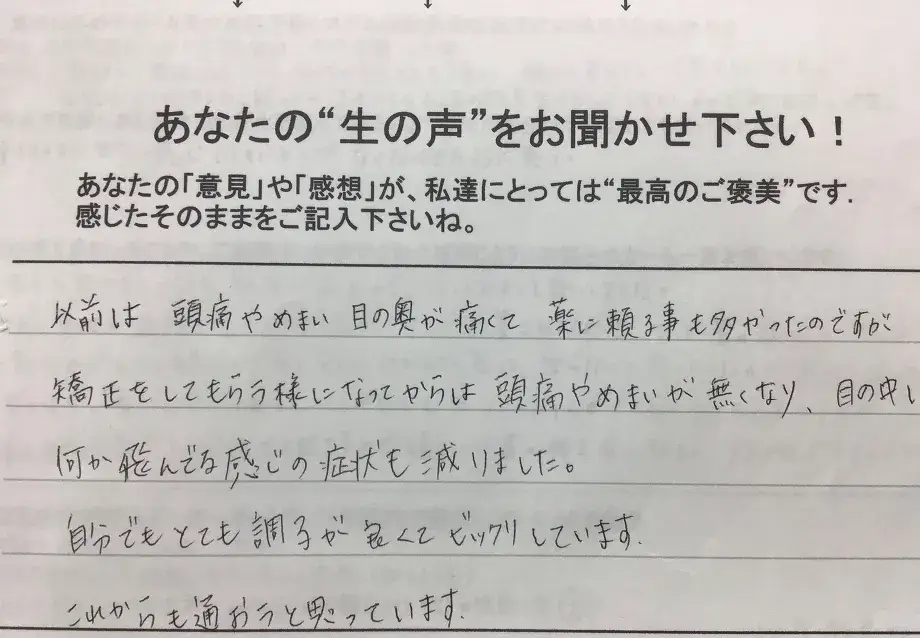 あなたの“生の声”をお聞かせ下さい！
あなたの「意見」や「感想」が、私達にとっては“最高のご褒美”です.
感じたそのままをご記入下さいね。
以前は 頭痛やめまい 目の奥が痛くて 薬に頼る事も多かったのですが
矯正をしてもらう様になってからは 頭痛やめまいが 無くなり、目の中に
何か飛んでる感じの症状も減りました。
自分でもとても調子が良くてビックリしています.
これからも通おうと思っています.